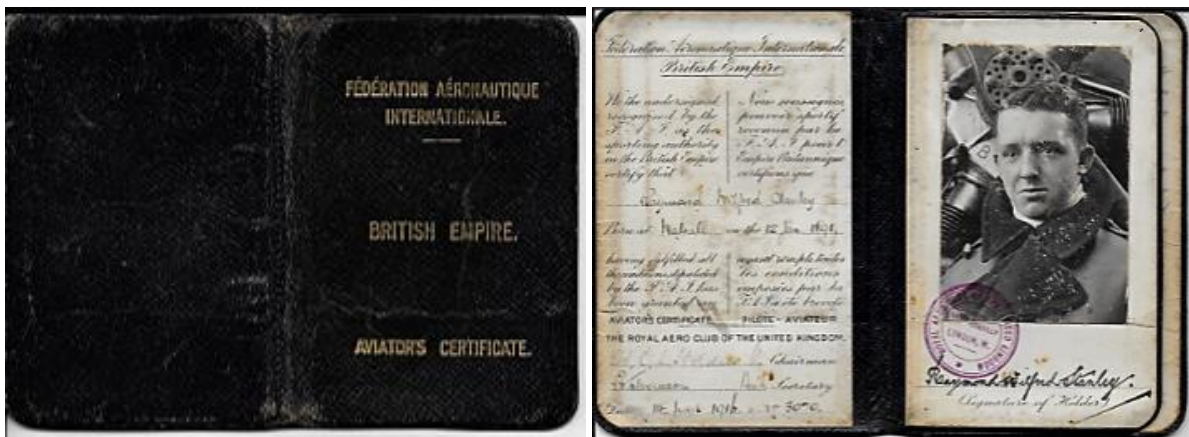 FÉDÉRATION AÉRONAUTIQUE
INTERNATIONALE.
BRITISH EMPIRE.
AVIATOR'S CERTIFICATE.
Fédération Aéronautique Internationale
British Empire
We the undersigned
recognized by the
F.A.I. as the
sporting authority
in the British Empire
certify that
Nous soussignés
pouvoir sportif
reconnu par la
F.A.I. pour l'
Empire Britannique
certifions que
Raymond Wilfred Stanley
Born at Walsall on the 12 189
having fulfilled all
the conditions stipulated
by the F.A.I. has
been granted an
ayant rempli toutes
les conditions
imposées par la
F.A.I. a été breveté
AVIATOR'S CERTIFICATE PILOTE-AVIATEUR
THE ROYAL AERO CLUB OF THE UNITED KINGDOM.
Chairman
Secretary
Date 1916
LONDON, W.
Raymond Wilfred Stanley.
(Signature of Holder)